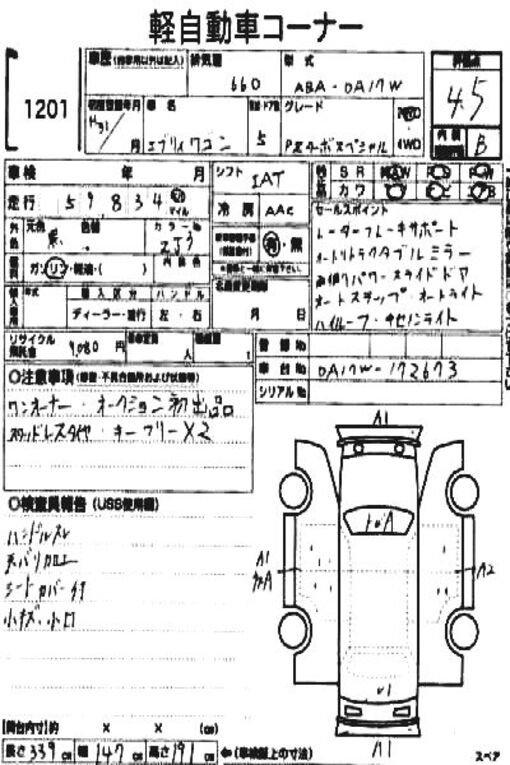 軽自動車コーナー
1201
車歴(自家用以外は記入) 排気量 型式 評価点
660 ABA-DA17W 4.5
初度登録年月 車名 ドア数 グレード 2WD
H31 月 エブリィワゴン 5 PZターボスペシャル 4WD
内装 B
車検 年 月 シフト IAT
走行 59,834 マイル 冷房 AAC
S R AW PS PW
カワ
外色 元色 黒 色替 カラーNo ZJ3
内装色
有・無
ガソリン・軽油・( )
年式 輸入区分 ハンドル 名義変更期限
ディーラー・並行 左・右 月 日
セールスポイント
レーダーブレーキサポート
オートリトラクタブルミラー
両側パワースライドドア
オートステップ・オートライト
ハイルーフ・
リサイクル預託金 9,080 円 乗車定員 人 積載量 t
登録No
車台No DA17W-172673
シリアルNo
○注意事項(修復・不具合箇所および状態等)
ワンオーナー・オークション初出品
スタッドレスタイヤ・キーフリー×2
○検査員報告(USS使用欄)
ハンドルスレ
天バリ加工
シートカバー付
小キズ・小凹
A1
A1
A2
A1
[荷台内寸]約 × × (cm)
長さ 339 cm 幅 147 cm 高さ 191 cm ←(車検証上の寸法)
スペア